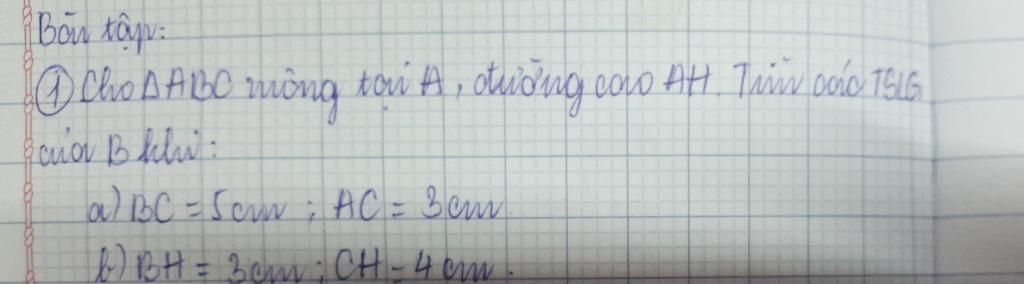 Bài tập:
① Cho ΔABC vuông tại A, đường cao AH. Tính các TSLG
của B khi:
a) BC = 5cm ; AC = 3cm.
b) BH = 3cm ; CH = 4cm.